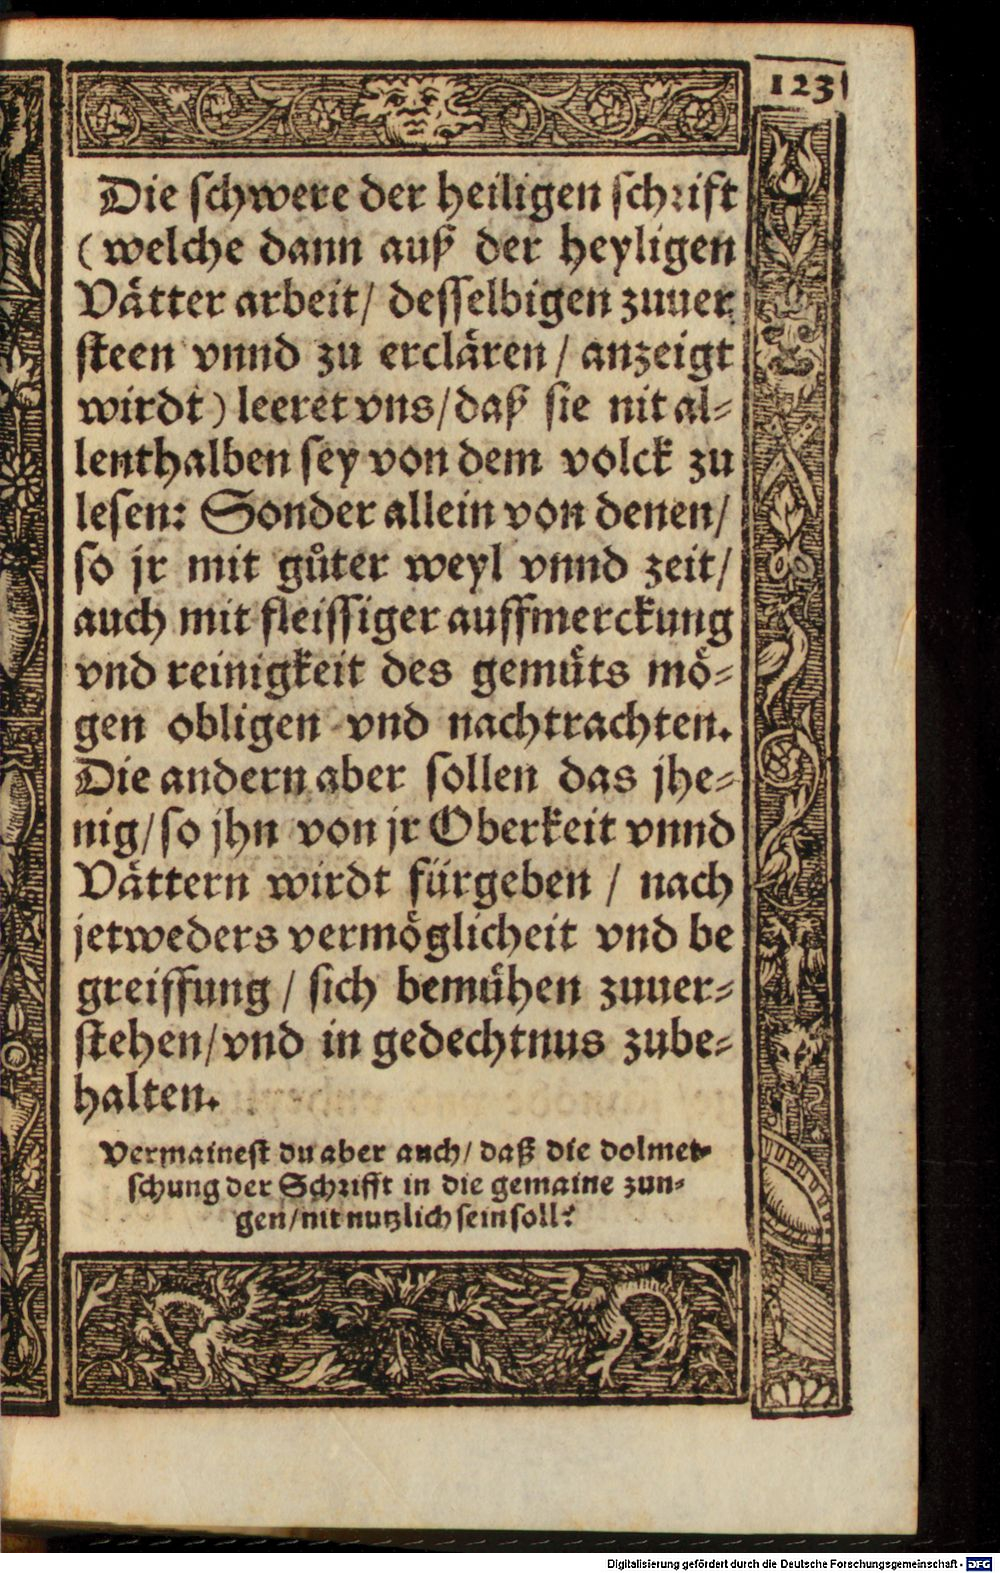 123
Die schwere der heiligen schrift
(welche dann auß der heyligen
Vätter arbeit/ desselbigen zuuer
steen vnnd zu erclären / anzeigt
wirdt) leeret vns/daß sie nit al⸗
lenthalben sey von dem volck zu
lesen: Sonder allein von denen/
so jr mit gůter weyl vnnd zeit/
auch mit fleissiger auffmerckung
vnd reinigkeit des gemüts mö⸗
gen obligen vnd nachtrachten.
Die andern aber sollen das jhe⸗
nig/so jhn von jr Oberkeit vnnd
Vättern wirdt fürgeben / nach
jetweders vermöglicheit vnd be
greiffung / sich bemühen zuuer⸗
stehen/vnd in gedechtnus zube⸗
halten.
Vermainest du aber auch/ daß die dolmet⸗
schung der Schrifft in die gemaine zun⸗
gen/nit nutzlich sein soll?
Digitalisierung gefördert durch die Deutsche Forschungsgemeinschaft - DFG